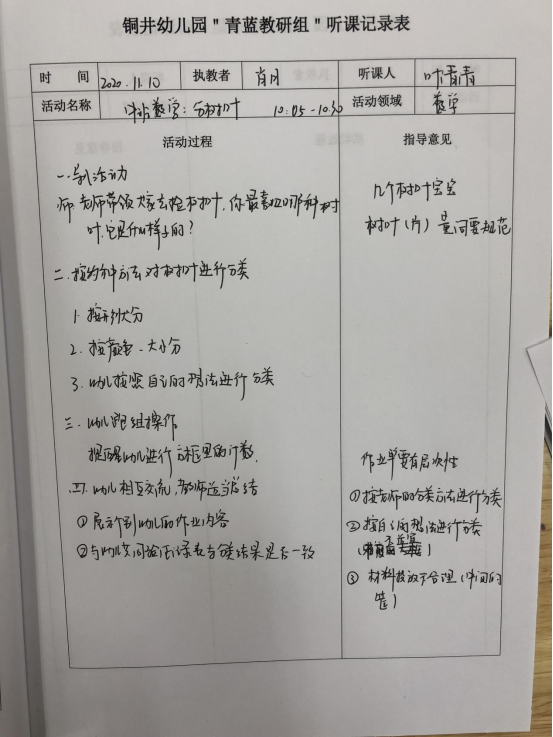 铜井幼儿园＂青蓝教研组＂听课记录表
时 间 2020.11.10 执教者 肖月 听课人 叶青青
活动名称 中班数学：分树叶 10:05-10:30 活动领域 数学
活动过程
一.导入活动
师 老师带领大家去捡树叶，你最喜欢哪种树
叶，它是什么样子的？
二.按多种方法对树叶进行分类
1. 按形状分
2. 按颜色、大小分
3. 幼儿按照自己的想法进行分类
三.幼儿跟组操作
提醒幼儿进行方框里的计数.
四.幼儿相互交流，教师适当总结
①展示个别幼儿的作业内容
②与幼儿共同验证记录表与分类结果是否一致
指导意见
几个树叶宝宝
树叶（片）量词要规范
作业单要有层次性
①按老师的分类方法进行分类
②按自己的想法进行分类
③ 材料投放不合理（中间的
筐）